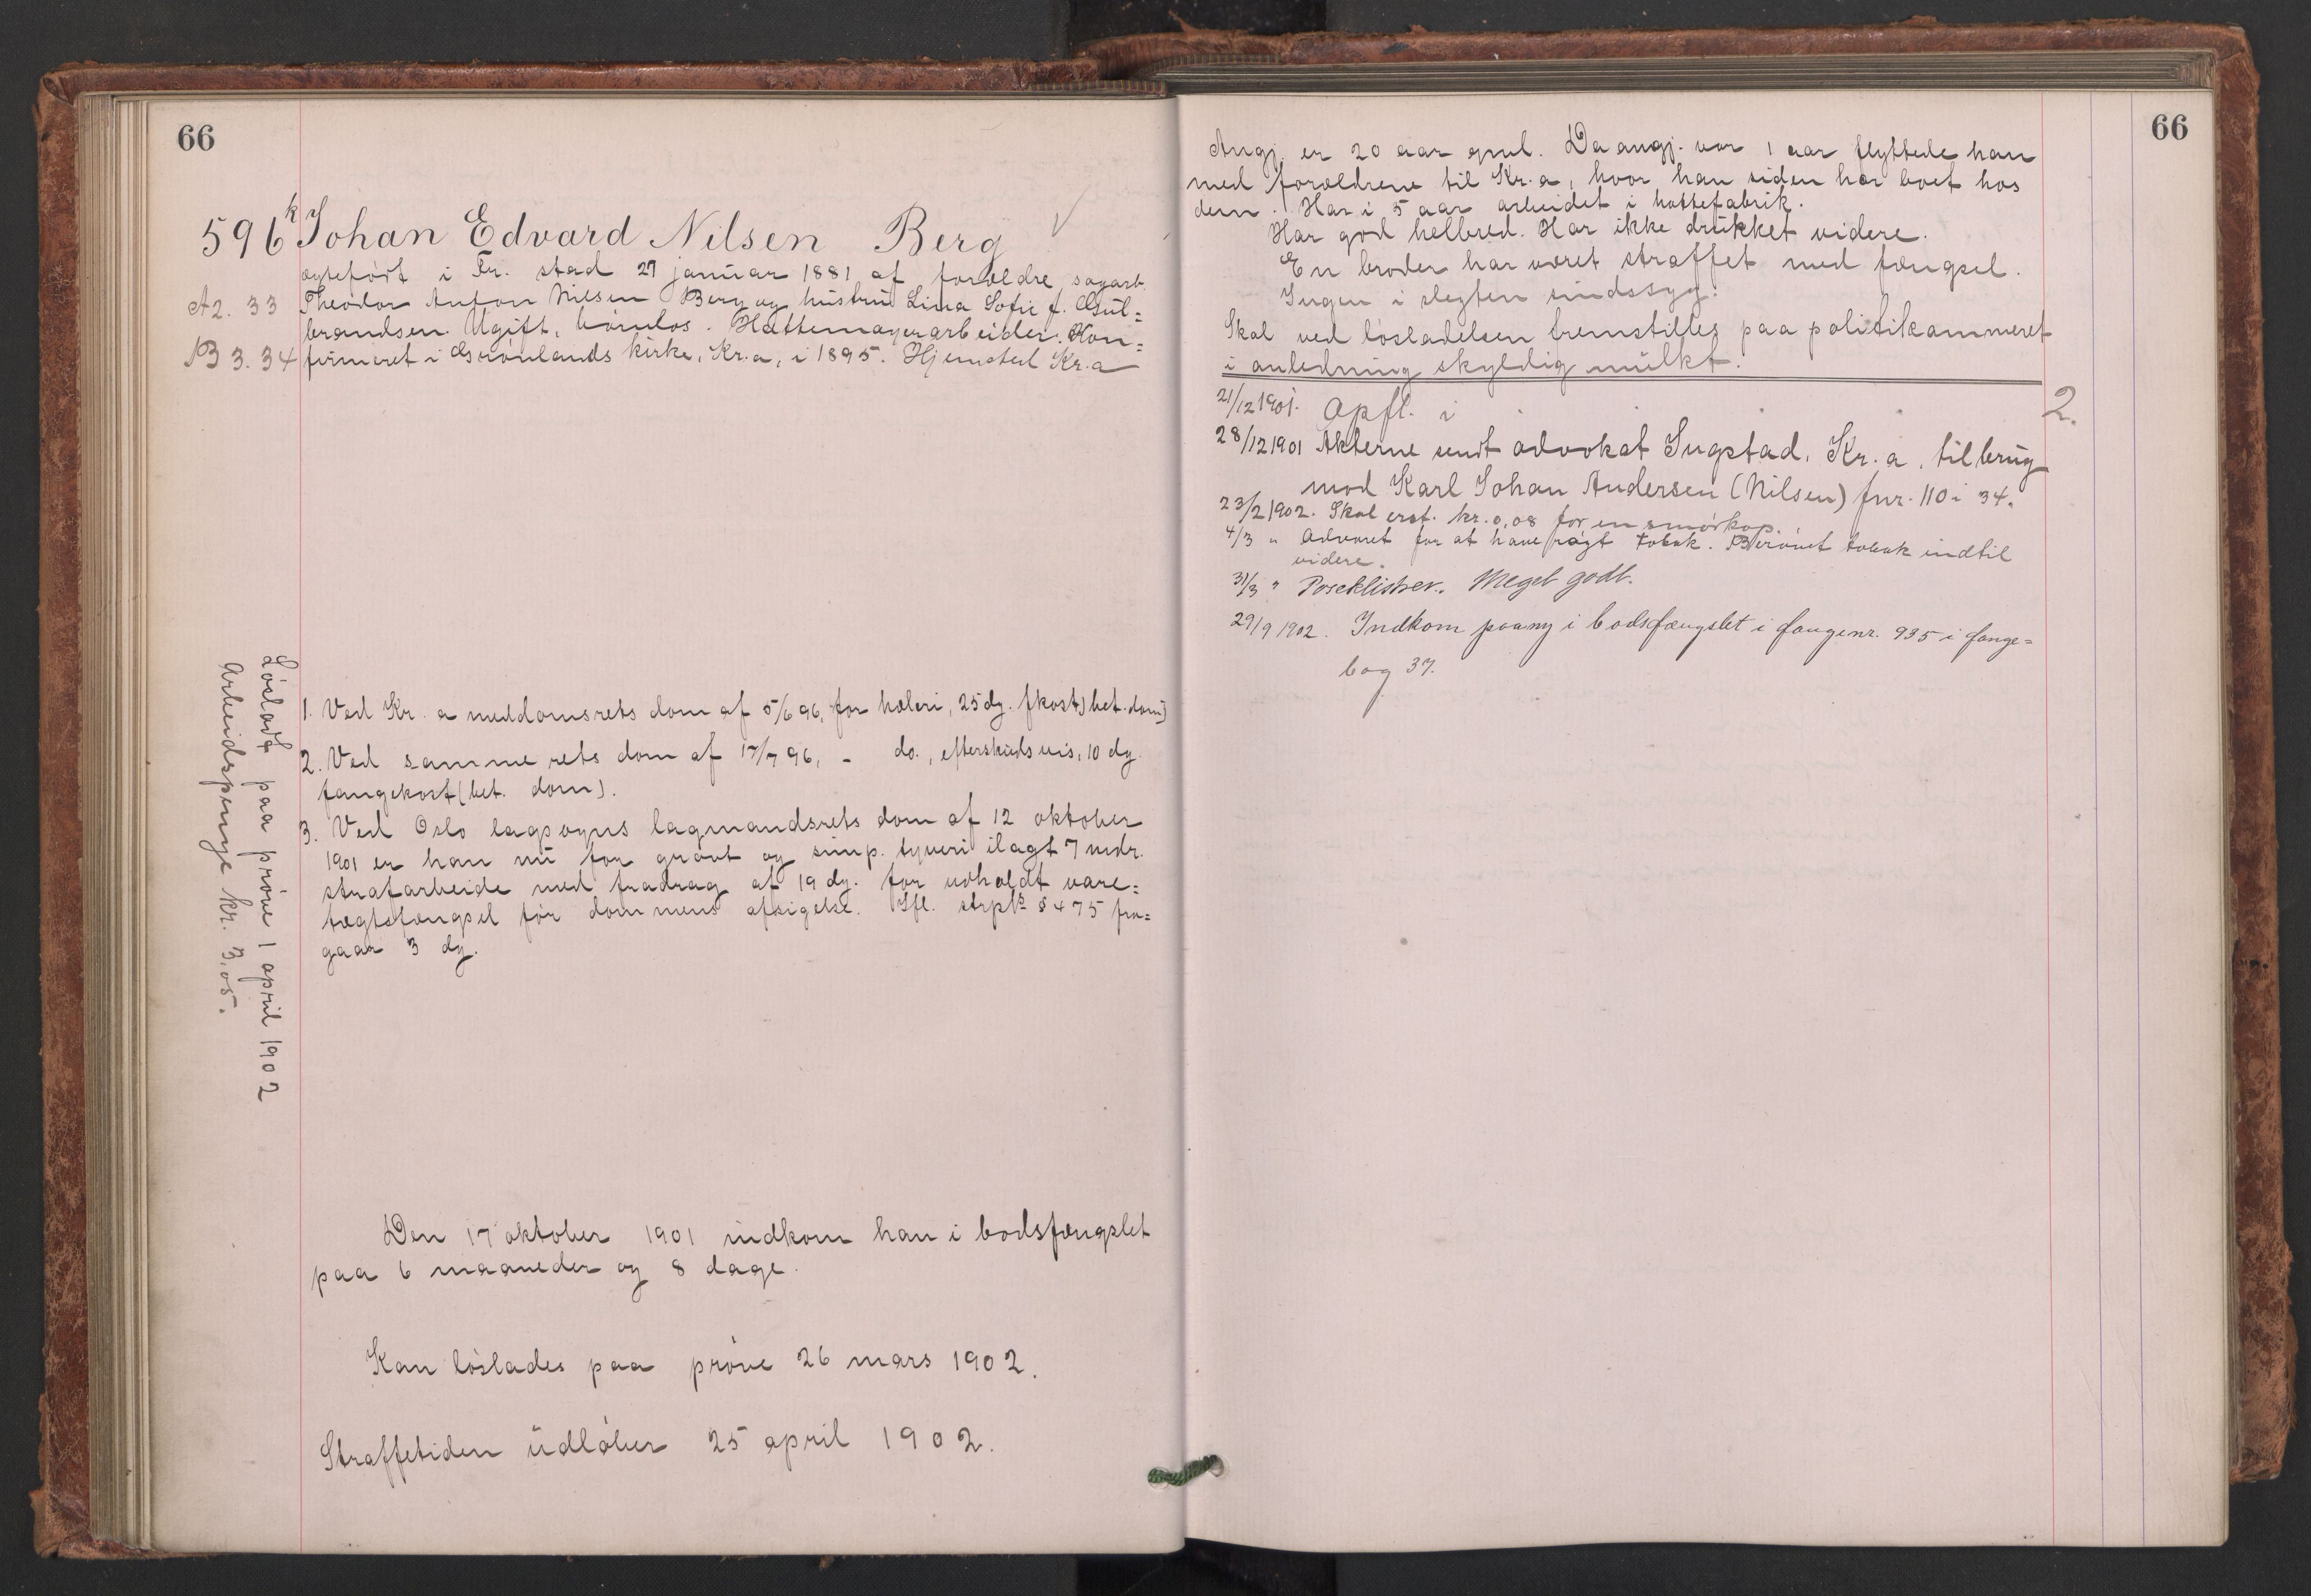 66
596 k Johan Edvard Nilsen Berg √
egtefødt i Fr. stad 27 januar 1881 af forældre, sagarb.
A 2. 33 Theodor Anton Nilsen Berg og hustru Lina Sofie f. Gul=
brandsen. Ugift, barnløs. Hattemagerarbeider. Kon=
B 3. 34 firmeret i Grønlands kirke, Kr.a, i 1895. Hjemsted Kr.a
Løsladt paa prøve 1 april 1902
Arbeidspenge kr. 3,05.
1. Ved Kr. a meddomsrets dom af 5/6 96, for hæleri, 25 dg. fkost (bet. dom)
2. Ved samme rets dom af 17/7 96, - do., efterskudsvis, 10 dg.
fangekost (bet. dom).
3. Ved Oslo lagsogns lagmandsrets dom af 12 oktober
1901 er han nu for grovt og simp. tyveri ilagt 7 mdr.
strafarbeide med fradrag af 19 dg. for udholdt vare=
tægtsfængsel før dommens afsigelse. Ifl. strpl § 475 fra=
gaar 3 dg.
Den 17 oktober 1901 indkom han i bodsfængslet
paa 6 maaneder og 8 dage.
Kan løslades paa prøve 26 mars 1902.
Straffetiden udløber 25 april 1902.
66
Angj. er 20 aar gml. Da angj. var 1 aar flyttede han
med forældrene til Kr.a, hvor han siden har boet hos
dem. Har i 5 aar arbeidet i hattefabrik.
Har god helbred. Har ikke drukket videre.
En broder har været straffet med fængsel.
Ingen i slegten sindssyg.
Skal ved løsladelsen fremstilles paa politikammeret
i anledning skyldig mulkt.
21/12 1901. Opfl. i 2.
28/12 1901 Akterne sendt advokat Sugstad, Kr.a, til brug
mod Karl Johan Andersen (Nilsen) fnr. 110 i 34.
23/2 1902. Skal erst. kr. 0,08 for en smørkop.
4/3 " Advaret for at have røgt tobak. Berøvet tobak indtil
videre.
31/3 " Poseklistrer. Meget godt.
29/9 1902. Indkom paany i bodsfængslet i fangenr. 935 i fange=
bog 37.